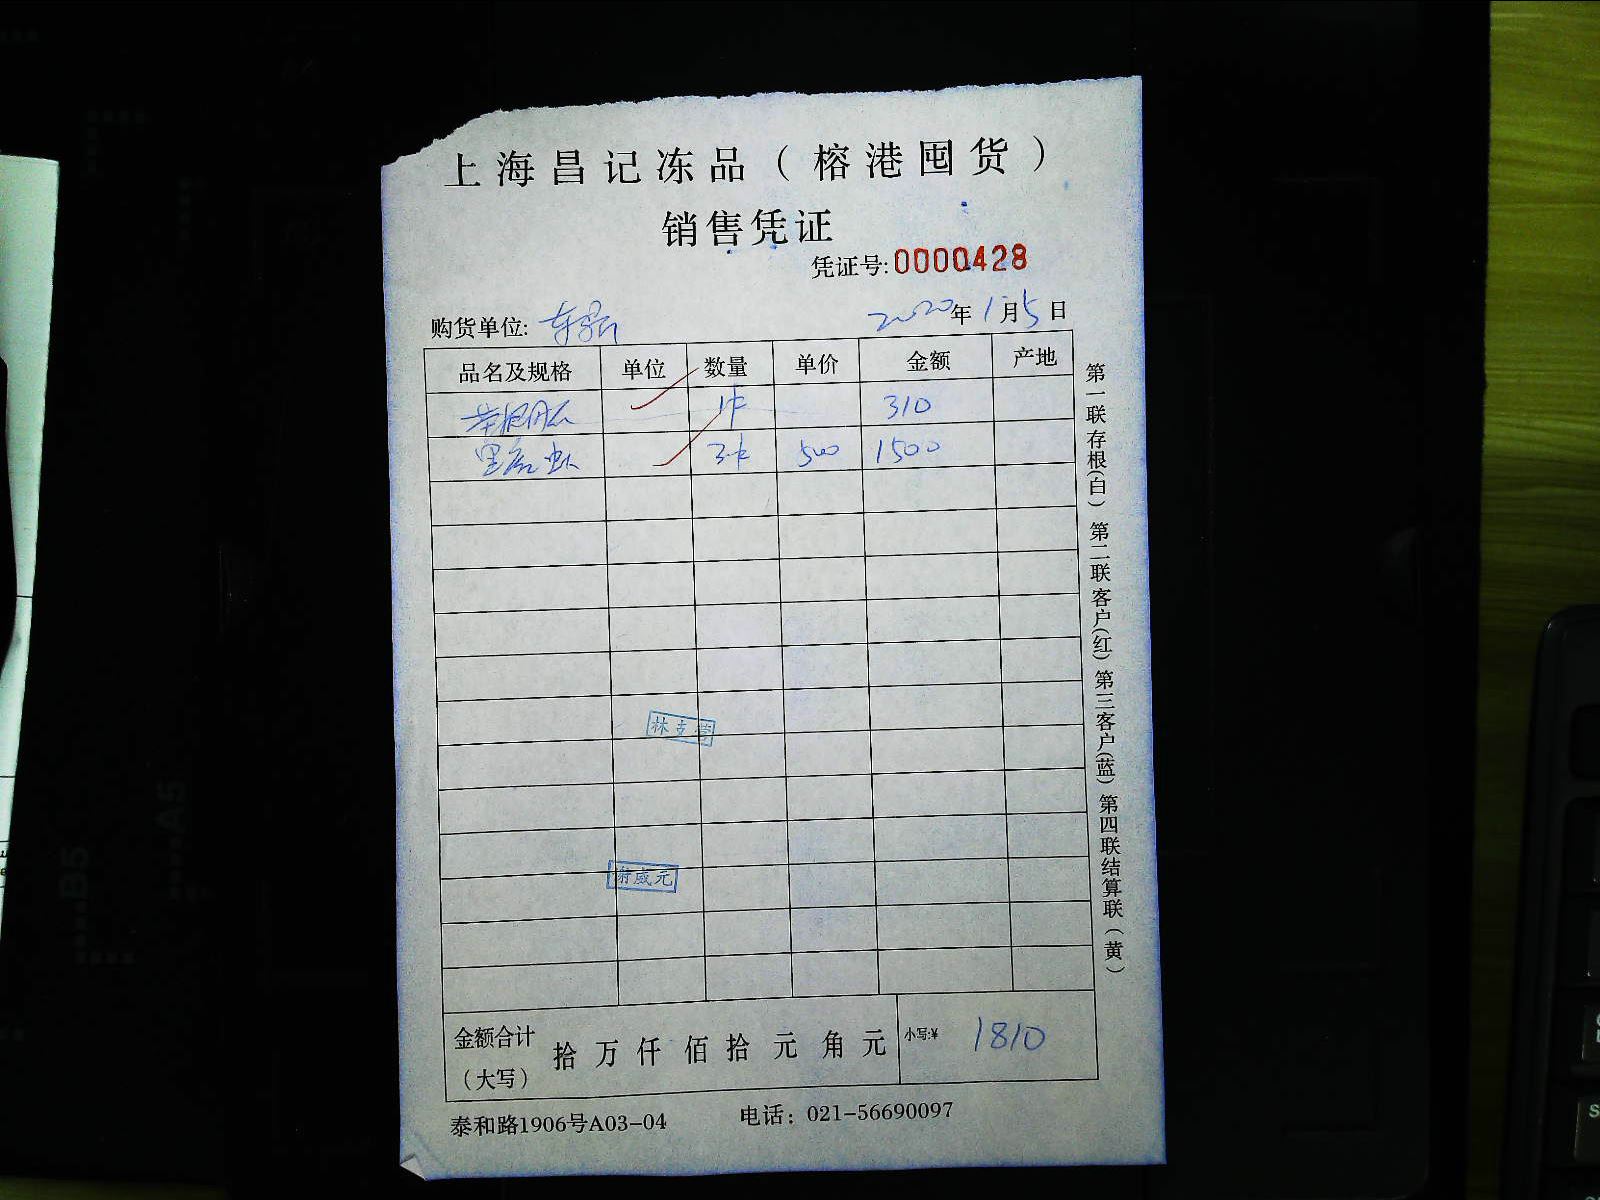 上海昌记冻品（榕港囤货）
销售凭证
凭证号:0000428
购货单位:
2020年1月5日
品名及规格 单位 数量 单价 金额 产地
1卡 310
3卡 500 1500
林支
威元
金额合计（大写） 拾万仟佰拾元角元 小写:¥ 1810
泰和路1906号A03-04 电话：021-56690097
第一联存根(白) 第二联客户(红) 第三客户(蓝) 第四联结算联(黄)
B5
A5